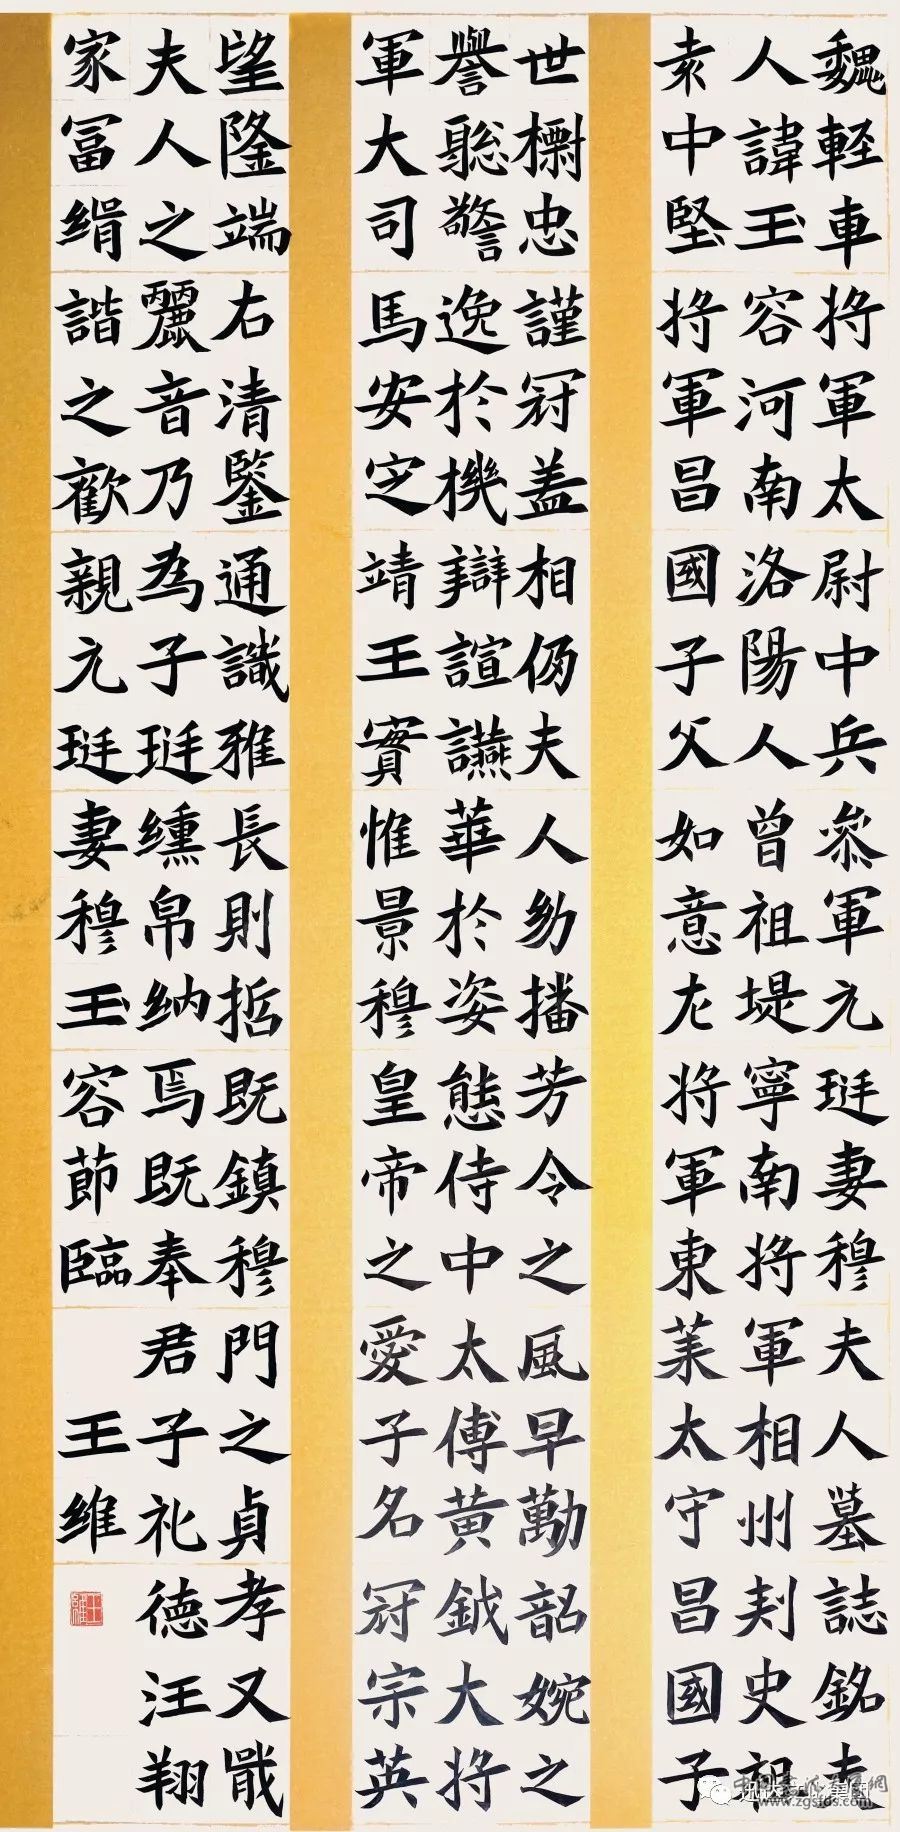 魏輕車将軍太尉中兵叅軍元珽妻穆夫人墓誌銘夫
人諱玉容河南洛陽人曾祖堤寧南将軍相州刾史祖
袁中堅将軍昌國子父如意左将軍東萊太守昌國子
世忠謹冠盖相仍夫人幼播芳令之風早勱韶婉之
譽聡警逸於機辯諠讌華於姿態侍中太傅黄鉞大将
軍大司馬安定靖王實惟景穆皇帝之愛子名冠宗英
望隆端右清鑒通識雅長則哲既鎮穆門之貞孝又戢
夫人之麗音乃為子珽纁帛納焉既奉君子礼德汪翔
家冨緝諧之歡親元珽妻穆玉容節臨 王維
王維